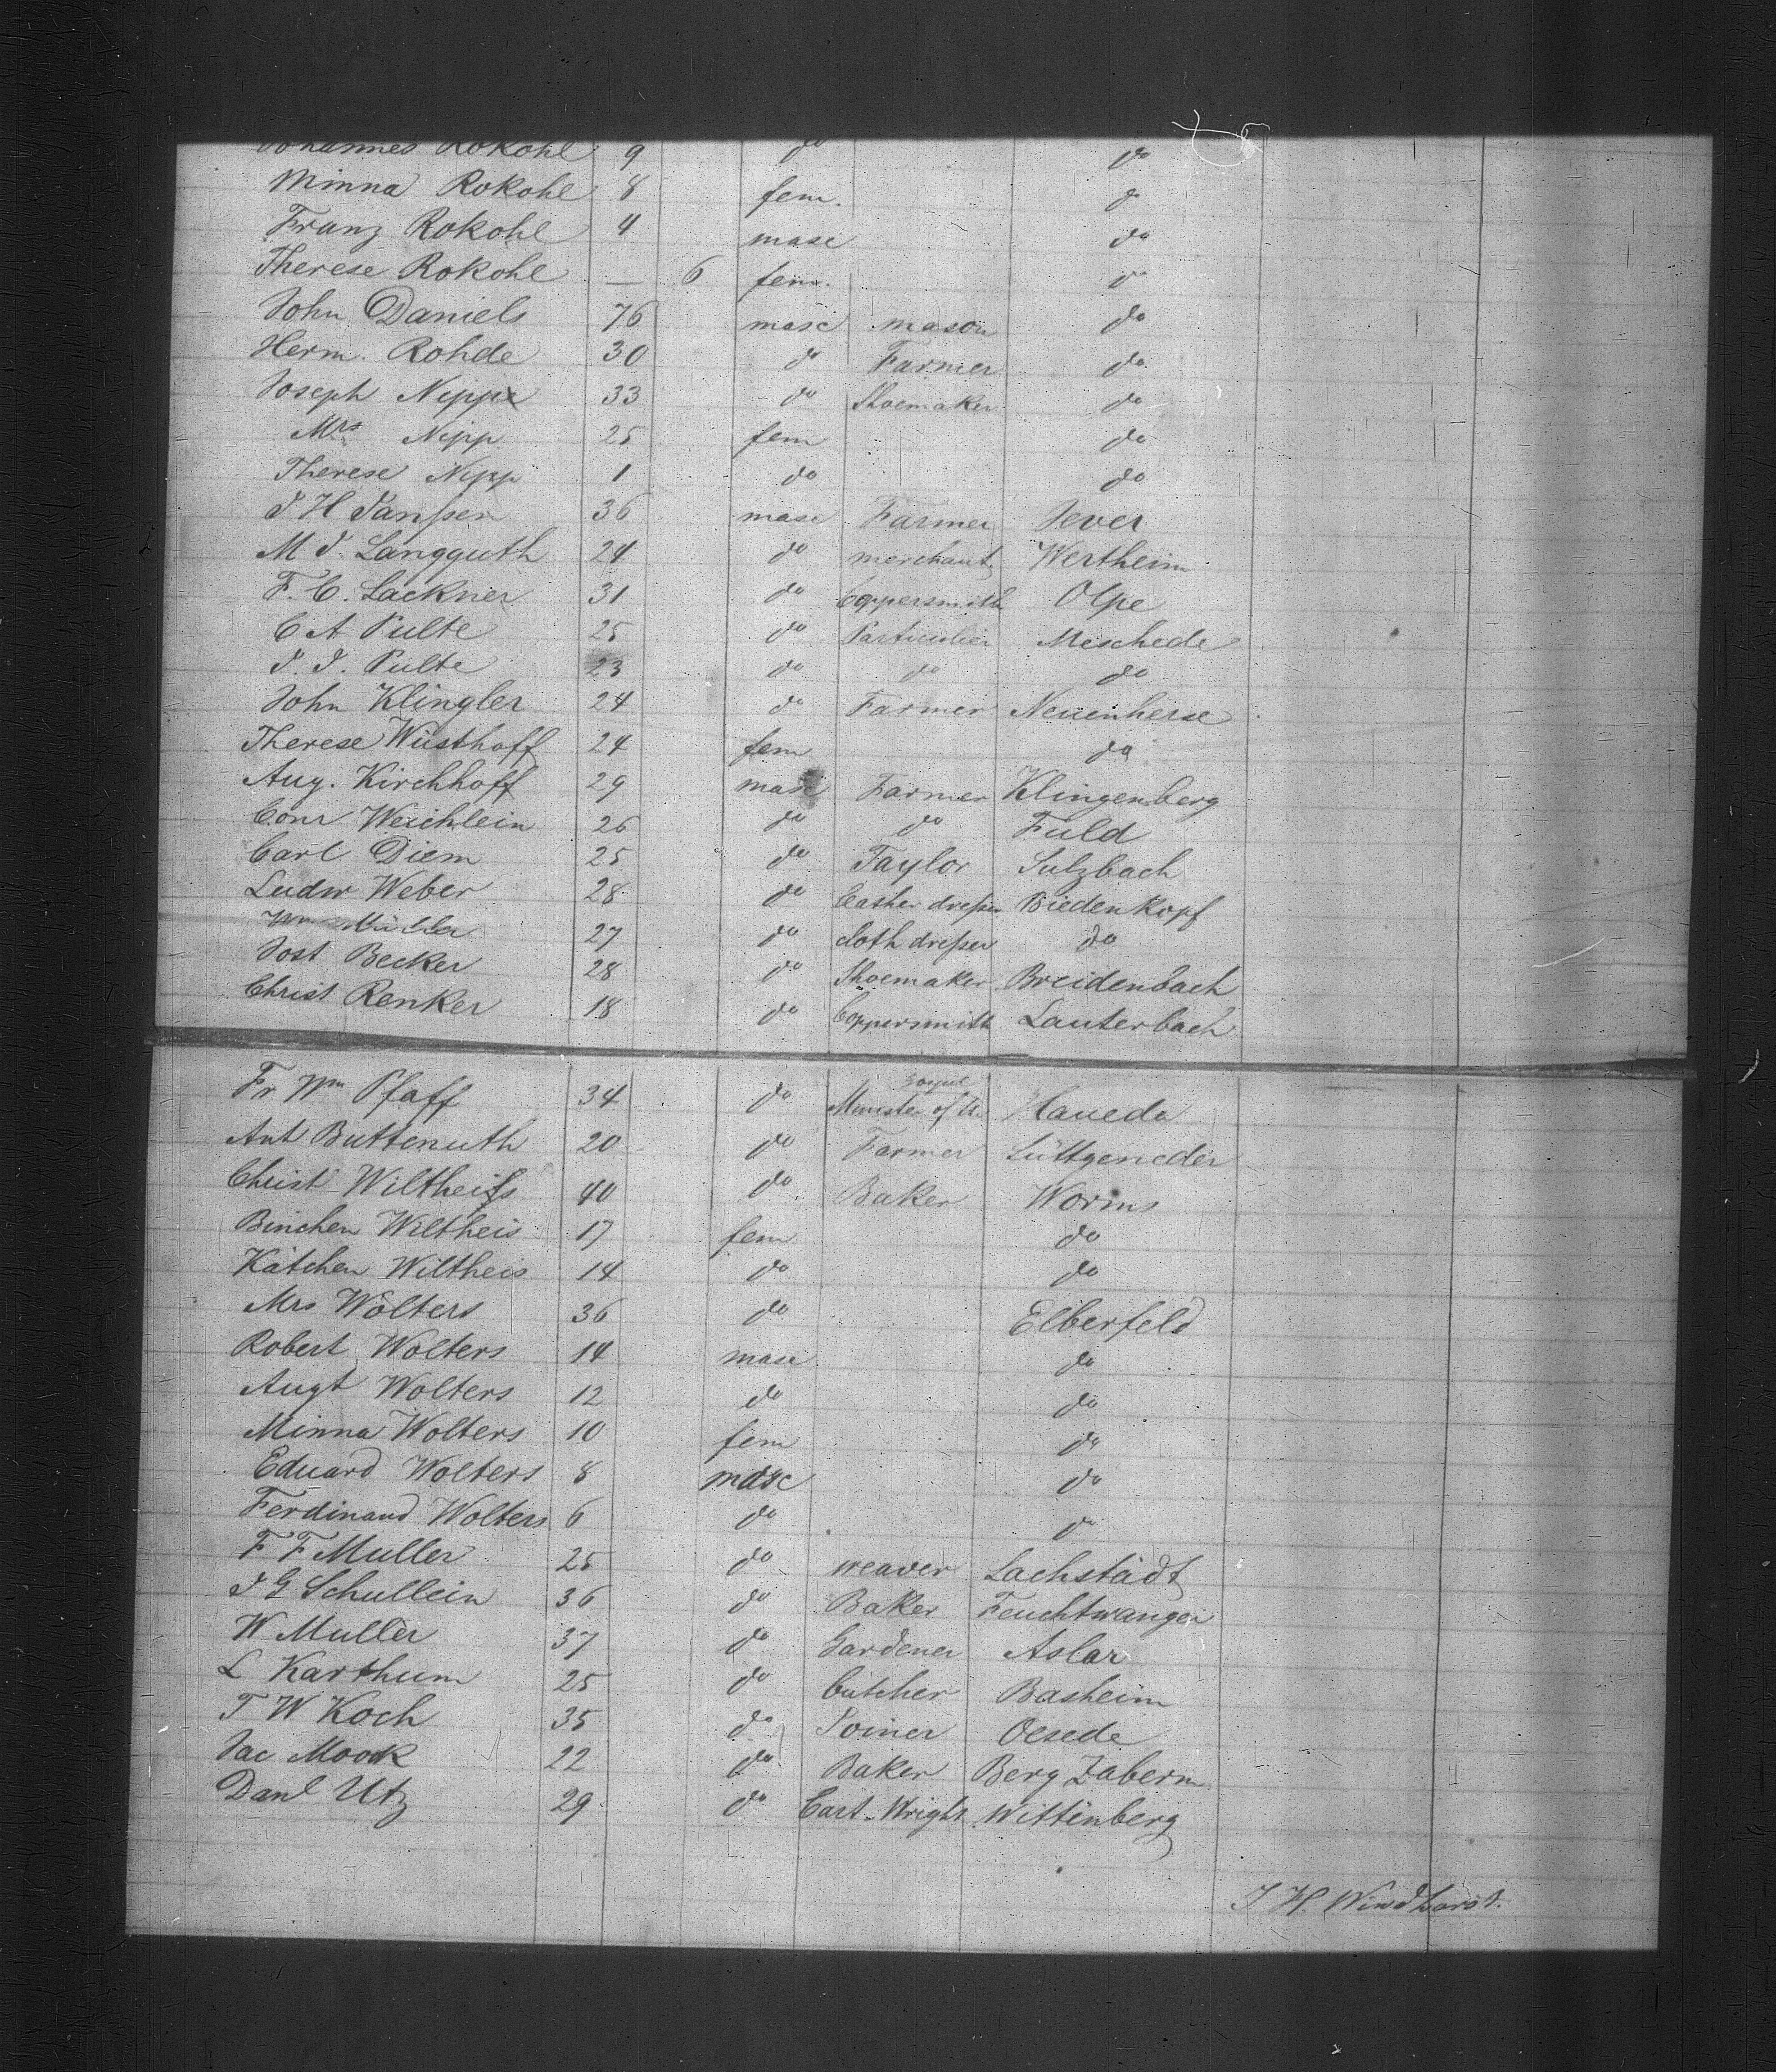 Johannes Rokohl 9 do do
Minna Rokohl 8 fem. do
Franz Rokohl 4 masc do
Therese Rokohl — 6 fem. do
John Daniels 76 masc mason do
Herm. Rohde 30 do Farmer do
Joseph Nipp 33 do Shoemaker do
Mrs Nipp 25 fem do
Therese Nipp 1 do do
J H Janssen 36 masc Farmer Jever
M J. Langguth 24 do merchant Wertheim
F. C. Lackner 31 do Coppersmith Olpe
C A Pulte 25 do Particulier Meschede
J. J. Pulte 23 do do do
John Klingler 24 do Farmer Neuenherse
Therese Wüsthoff 24 fem do
Aug. Kirchhoff 29 masc Farmer Klingenberg
Conr Weichlein 26 do do Fuld
Carl Diem 25 do Taylor Sulzbach
Ludw Weber 28 do Leather dresser Biedenkopf
Wm Müller 27 do cloth dresser do
Jost Becker 28 do Shoemaker Breidenbach
Christ Renker 18 do Coppersmith Lauterbach
Fr Wm Pfaff 34 do Minister of Haueda
Ant Buttenuth 20 do Farmer Lüttgeneder
Christ Wiltheiss 40 do Baker Worms
Binchen Wiltheis 17 fem do
Kätchen Wiltheis 14 do do
Mrs Wolters 36 do Elberfeld
Robert Wolters 14 masc do
Augt Wolters 12 do do
Minna Wolters 10 fem do
Eduard Wolters 8 masc do
Ferdinand Wolters 6 do do
F F Muller 25 do weaver Lachstädt
J G Schullein 36 do Baker Feuchtwangen
W Muller 37 do Gardener Aslar
L Karthum 25 do butcher Basheim
T W Koch 35 do Joiner Oesede
Jac Mook 22 do Baker Berg Zabern
Danl Utz 29 do Cart-Wright Wittenberg
J H. Windhorst.